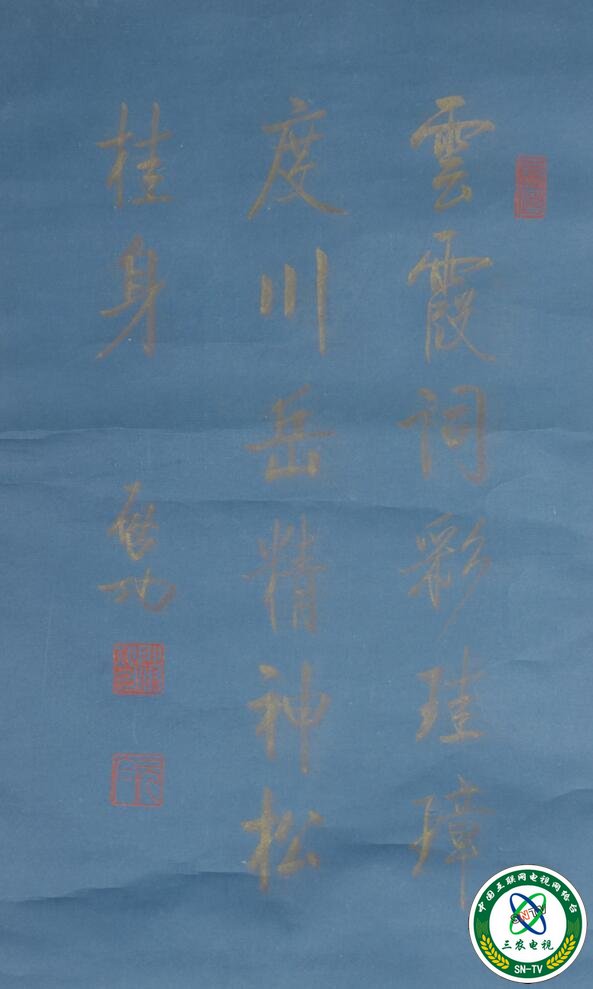 雲霞詞彩珪璋
度川岳精神松
桂身
啟功
中国互联网电视网络台
SNTV
三农电视
SN-TV